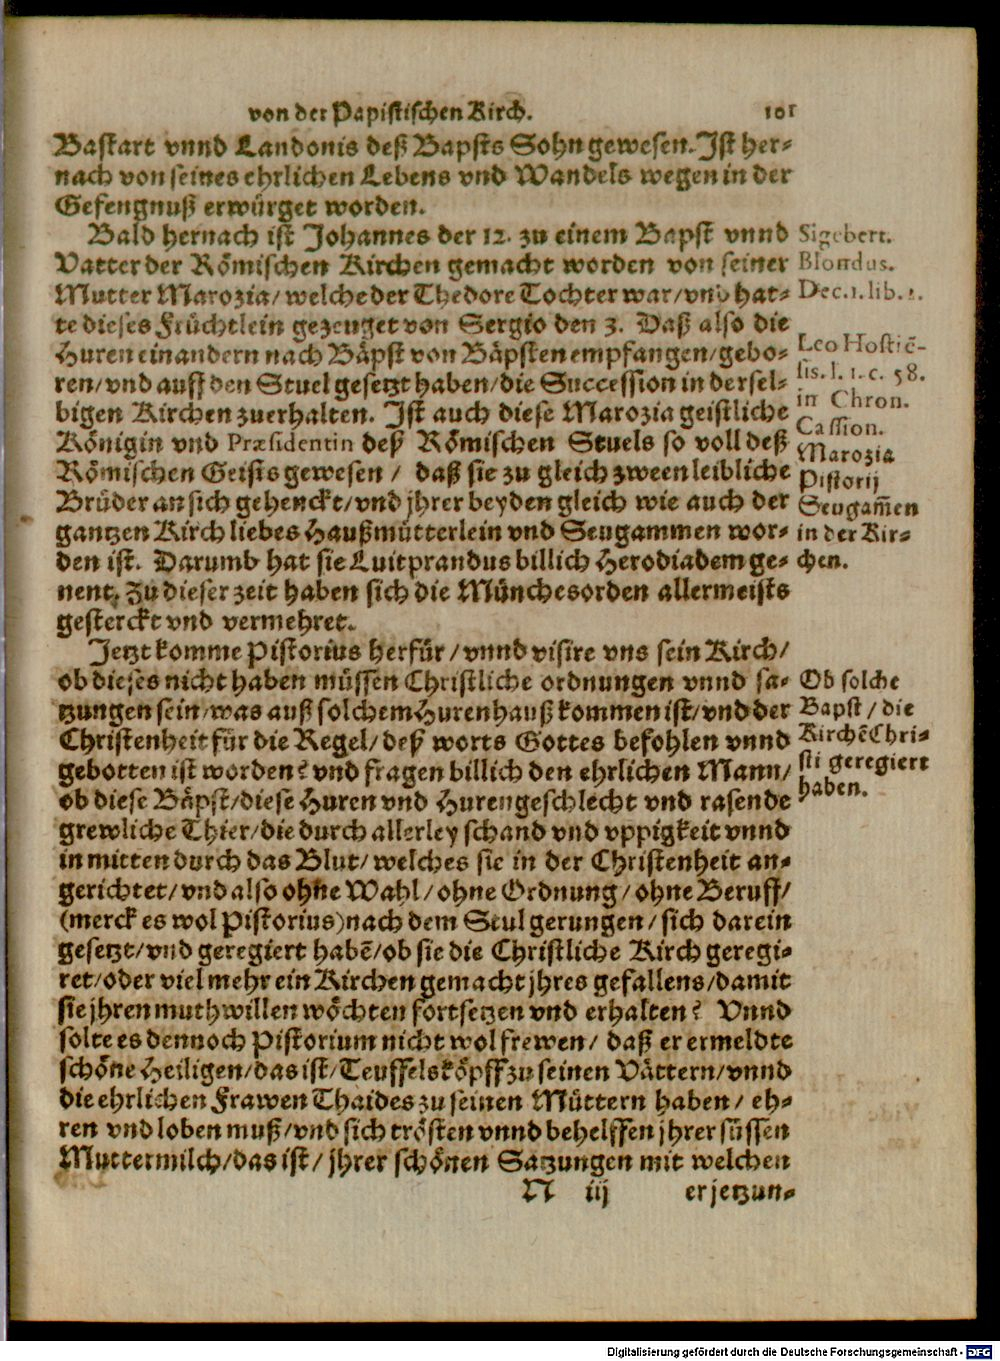 von der Papistischen Kirch. 101
Bastart vnnd Landonis deß Bapsts Sohn gewesen. Ist her-
nach von seines ehrlichen Lebens vnd Wandels wegen in der
Gefengnuß erwürget worden.
Bald hernach ist Johannes der 12. zu einem Bapst vnnd
Vatter der Römischen Kirchen gemacht worden von seiner
Mutter Marozia/ welche der Thedore Tochter war/ vnd hat-
te dieses Früchtlein gezeuget von Sergio den 3. Daß also die
Huren einandern nach Bäpst von Bäpsten empfangen/ gebo-
ren/ vnd auff den Stuel gesetzt haben/ die Succession in dersel-
bigen Kirchen zuerhalten. Ist auch diese Marozia geistliche
Königin vnd Præsidentin deß Römischen Stuels so voll deß
Römischen Geists gewesen/ daß sie zu gleich zween leibliche
Brüder an sich gehenckt/ vnd jhrer beyden gleich wie auch der
gantzen Kirch liebes Haußmütterlein vnd Seugammen wor-
den ist. Darumb hat sie Luitprandus billich Herodiadem ge-
nent. Zu dieser zeit haben sich die Münchesorden allermeists
gesterckt vnd vermehret.
Jetzt komme Pistorius herfür/ vnnd visire vns sein Kirch/
ob dieses nicht haben müssen Christliche ordnungen vnnd sa-
tzungen sein/ was auß solchem Hurenhauß kommen ist/ vnd der
Christenheit für die Regel/ deß worts Gottes befohlen vnnd
gebotten ist worden? vnd fragen billich den ehrlichen Mann/
ob diese Bäpst/ diese Huren vnd Hurengeschlecht vnd rasende
grewliche Thier/ die durch allerley schand vnd vppigkeit vnnd
in mitten durch das Blut/ welches sie in der Christenheit an-
gerichtet/ vnd also ohne Wahl/ ohne Ordnung/ ohne Beruff/
(merck es wol Pistorius) nach dem Stul gerungen/ sich darein
gesetzt/ vnd geregiert habē/ ob sie die Christliche Kirch geregi-
ret/ oder viel mehr ein Kirchen gemacht jhres gefallens/ damit
sie jhren muthwillen möchten fortsetzen vnd erhalten? Vnnd
solte es dennoch Pistorium nicht wol frewen/ daß er ermeldte
schöne Heiligen/ das ist/ Teuffelsköpff zu seinen Vättern/ vnnd
die ehrlichen Frawen Thaides zu seinen Müttern haben/ eh-
ren vnd loben muß/ vnd sich trösten vnnd behelffen jhrer süssen
Muttermilch/ das ist/ jhrer schönen Satzungen mit welchen
N iij er jetzun-
Sigebert.
Blondus.
Dec. 1. lib. 2.
Leo Hostiē-
sis. l. 1. c. 58.
in Chron.
Cassion.
Marozia
Pistorij
Seugam̄en
in der Kir-
chen.
Ob solche
Bapst/ die
Kirchē Chri-
sti geregiert
haben.
Digitalisierung gefördert durch die Deutsche Forschungsgemeinschaft - DFG